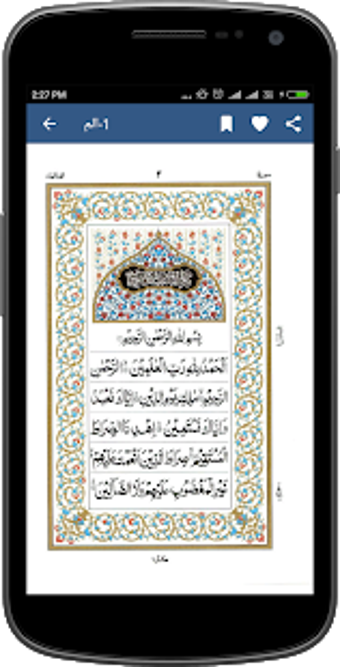 2:27 PM
1-الم
٢
بِسْمِ اللهِ الرَّحْمٰنِ الرَّحِيْمِ
اَلْحَمْدُ لِلّٰهِ رَبِّ الْعٰلَمِيْنَ ۙ الرَّحْمٰنِ
الرَّحِيْمِ ۙ مٰلِكِ يَوْمِ الدِّيْنِ ؕ اِيَّاكَ نَعْبُدُ
وَاِيَّاكَ نَسْتَعِيْنُ ؕ اِهْدِنَا الصِّرَاطَ
الْمُسْتَقِيْمَ ۙ صِرَاطَ الَّذِيْنَ اَنْعَمْتَ عَلَيْهِمْ
غَيْرِ الْمَغْضُوْبِ عَلَيْهِمْ وَلَا الضَّآلِّيْنَ